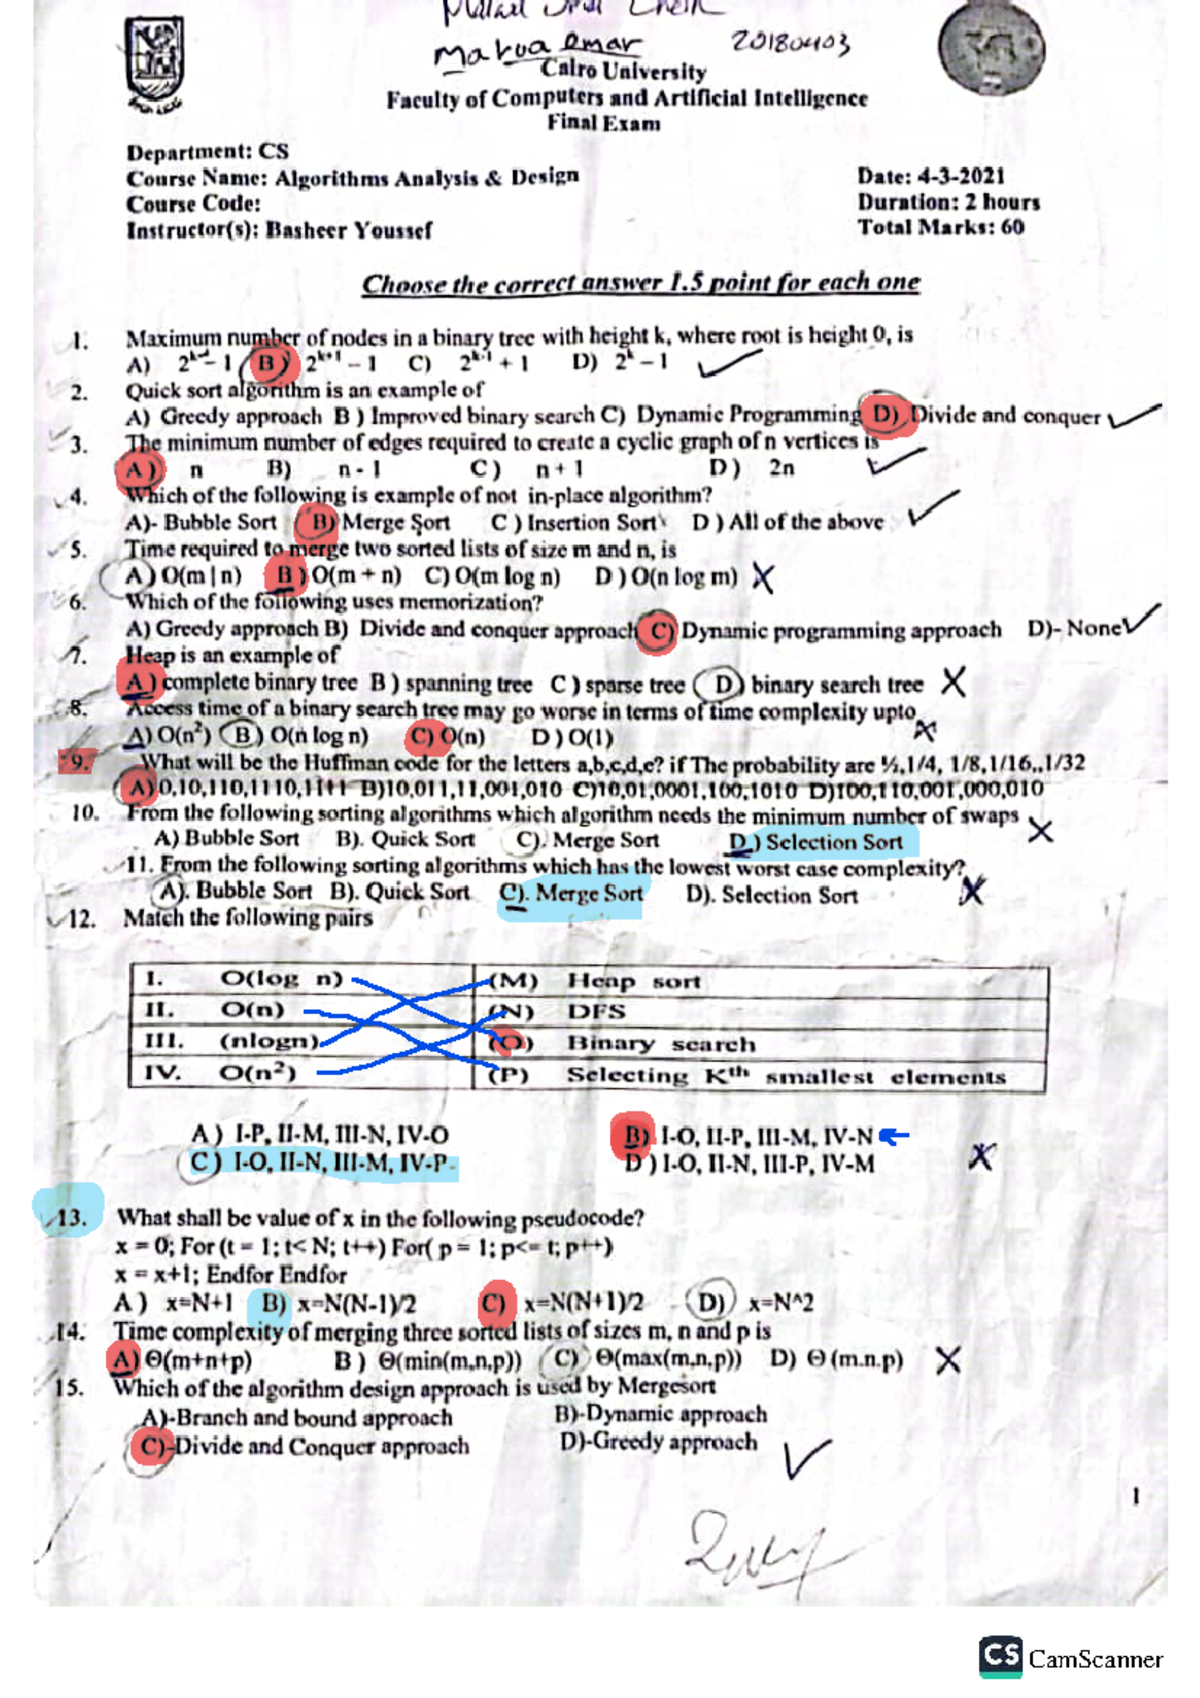 Marwa Omar 20180403
Cairo University
Faculty of Computers and Artificial Intelligence
Final Exam
Department: CS
Course Name: Algorithms Analysis & Design Date: 4-3-2021
Course Code: Duration: 2 hours
Instructor(s): Basheer Youssef Total Marks: 60
Choose the correct answer 1.5 point for each one
1. Maximum number of nodes in a binary tree with height k, where root is height 0, is
A) 2ᵏ⁻¹ – 1 B) 2ᵏ⁺¹ – 1 C) 2ᵏ⁻¹ + 1 D) 2ᵏ – 1
2. Quick sort algorithm is an example of
A) Greedy approach B ) Improved binary search C) Dynamic Programming D) Divide and conquer
3. The minimum number of edges required to create a cyclic graph of n vertices is
A ) n B) n - 1 C ) n + 1 D ) 2n
4. Which of the following is example of not in-place algorithm?
A)- Bubble Sort B) Merge Sort C ) Insertion Sort D ) All of the above
5. Time required to merge two sorted lists of size m and n, is
A ) O(m | n) B ) O(m + n) C) O(m log n) D ) O(n log m)
6. Which of the following uses memorization?
A) Greedy approach B) Divide and conquer approach C) Dynamic programming approach D)- None
7. Heap is an example of
A ) complete binary tree B ) spanning tree C ) sparse tree D) binary search tree
8. Access time of a binary search tree may go worse in terms of time complexity upto
A) O(n²) B ) O(n log n) C) O(n) D ) O(1)
9. What will be the Huffman code for the letters a,b,c,d,e? if The probability are ½,1/4, 1/8,1/16,,1/32
A) 0,10,110,1110,1111 B)10,011,11,001,010 C)10,01,0001,100,1010 D)100,110,001,000,010
10. From the following sorting algorithms which algorithm needs the minimum number of swaps
A) Bubble Sort B). Quick Sort C). Merge Sort D ) Selection Sort
11. From the following sorting algorithms which has the lowest worst case complexity?
A). Bubble Sort B). Quick Sort C). Merge Sort D). Selection Sort
12. Match the following pairs
I. O(log n) (M) Heap sort
II. O(n) (N) DFS
III. (nlogn) (O) Binary search
IV. O(n²) (P) Selecting Kᵗʰ smallest elements
A ) I-P, II-M, III-N, IV-O B) I-O, II-P, III-M, IV-N
C ) I-O, II-N, III-M, IV-P D ) I-O, II-N, III-P, IV-M
13. What shall be value of x in the following pseudocode?
x = 0; For (t = 1; t< N; t++) For( p = 1; p<= t; p++)
x = x+1; Endfor Endfor
A ) x=N+1 B) x=N(N-1)/2 C) x=N(N+1)/2 D) x=N^2
14. Time complexity of merging three sorted lists of sizes m, n and p is
A) Θ(m+n+p) B ) Θ(min(m,n,p)) C) Θ(max(m,n,p)) D) Θ (m.n.p)
15. Which of the algorithm design approach is used by Mergesort
A)-Branch and bound approach B)-Dynamic approach
C)-Divide and Conquer approach D)-Greedy approach
1
CS CamScanner